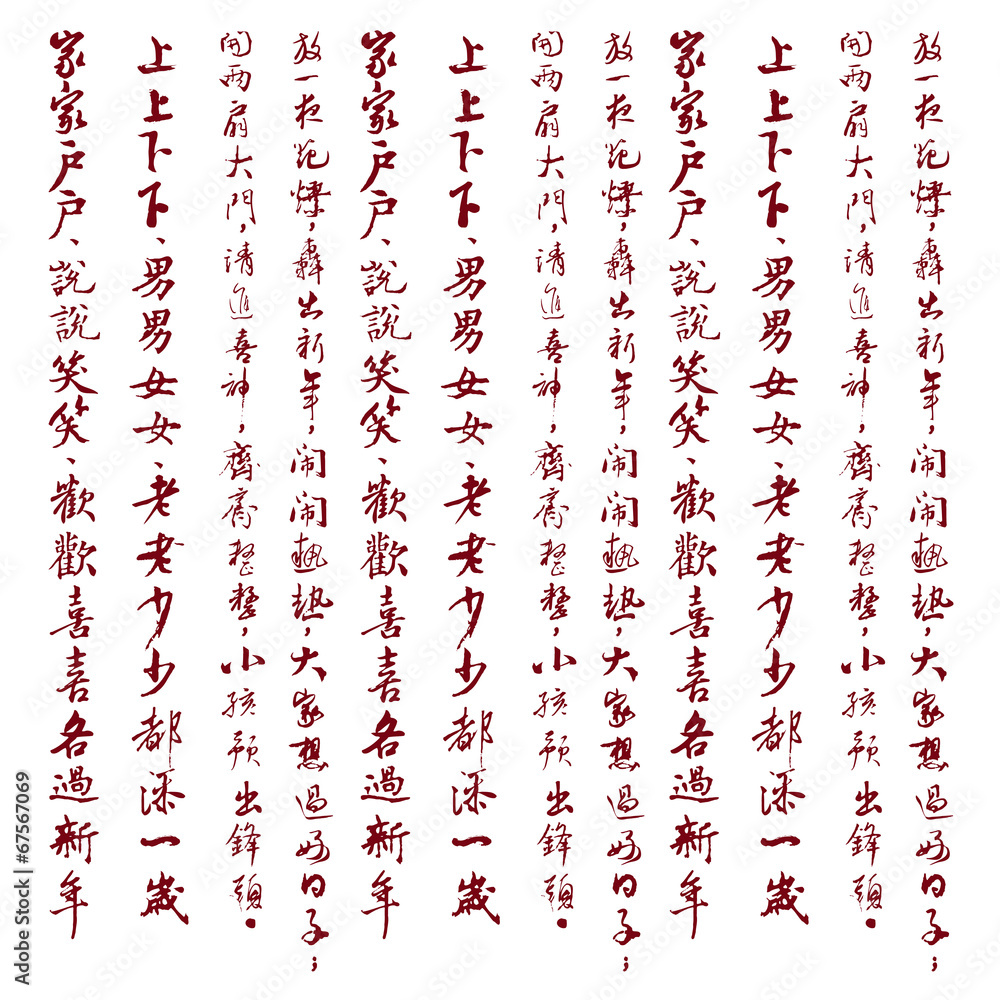 放一夜炮燎，轟出新年，闹闹熱熱，大家想過好日子；
開兩扇大門，請進喜神，齊齊整整，小孩預出鋒頭。
上上下下、男男女女、老老少少都添一歲
家家戶戶、說說笑笑、歡歡喜喜各過新年
放一夜炮燎，轟出新年，闹闹熱熱，大家想過好日子；
開兩扇大門，請進喜神，齊齊整整，小孩預出鋒頭。
上上下下、男男女女、老老少少都添一歲
家家戶戶、說說笑笑、歡歡喜喜各過新年
放一夜炮燎，轟出新年，闹闹熱熱，大家想過好日子；
開兩扇大門，請進喜神，齊齊整整，小孩預出鋒頭。
上上下下、男男女女、老老少少都添一歲
家家戶戶、說說笑笑、歡歡喜喜各過新年
Adobe Stock | #67567069